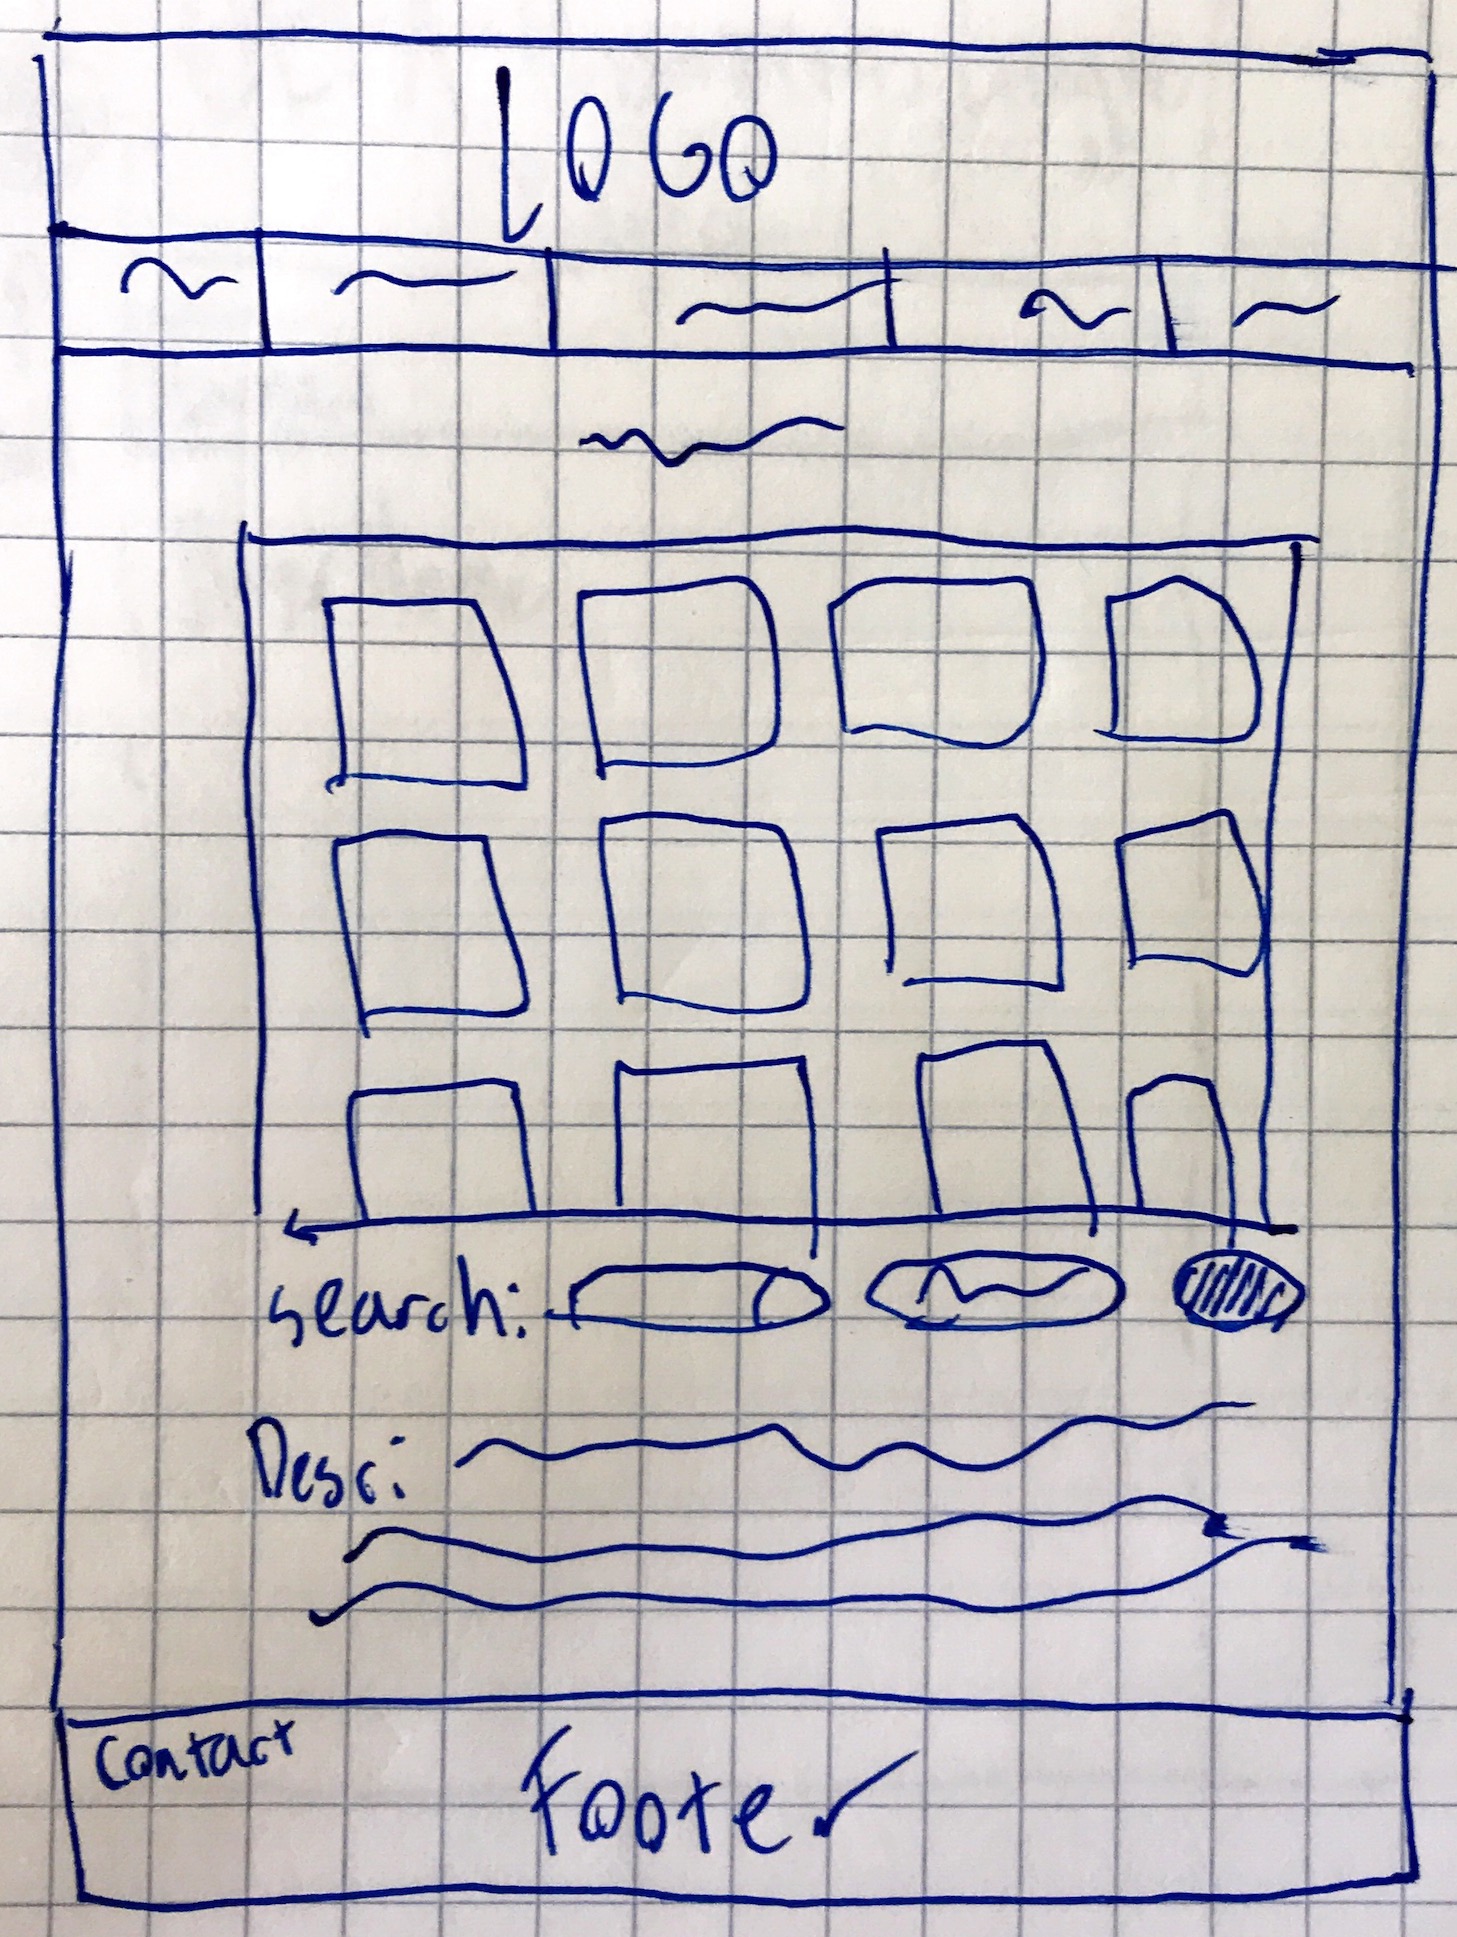 LOGO
search:
Desc:
Contact
Footer